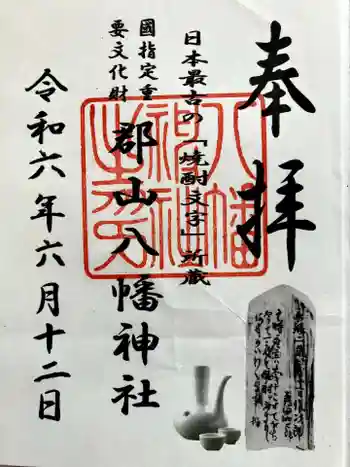 奉拝
日本最古の「焼酎文字」所蔵
國指定重
要文化財
郡山八幡神社
令和六年六月十二日